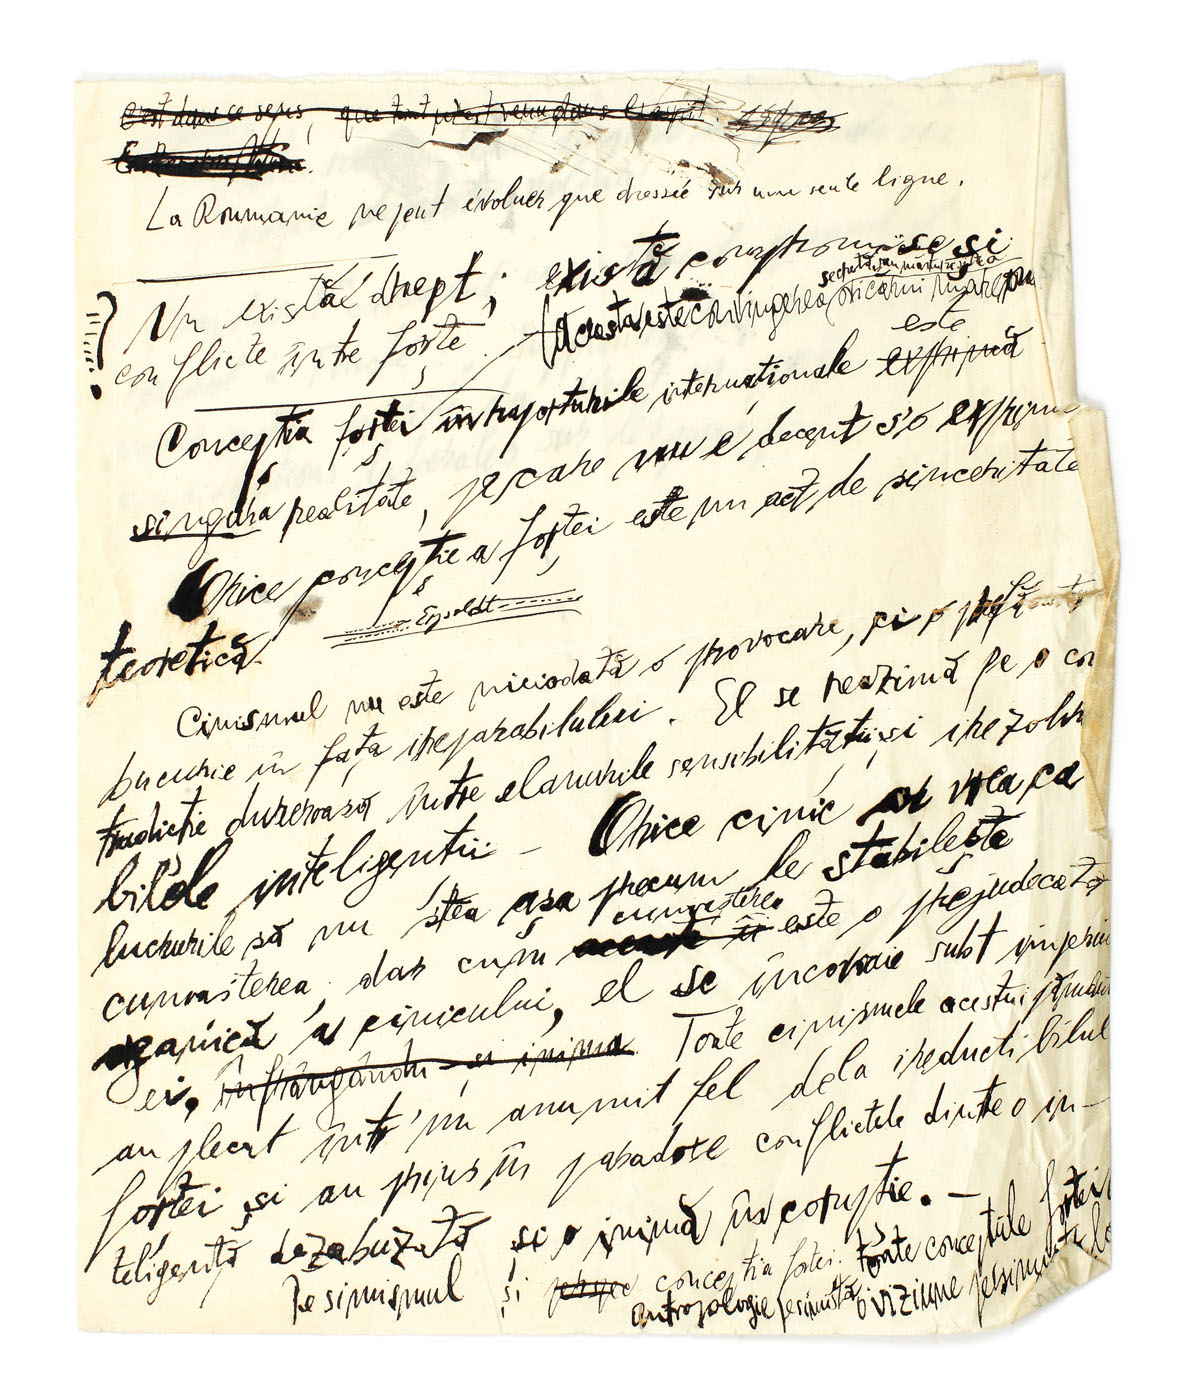 C'est dans ce sens, que tout p'est venu dans l'esprit.
La Roumanie ne peut évoluer que dressée sur une seule ligne.
Nu există drept; există compromise și
conflicte între forțe. (Aceasta este convingerea oricărui mare om
este
Concepția forței în raporturile internaționale exprimă
singura realitate, pe care nu e decent s'o exprime
Orice concepție a forței este un act de sinceritate
teoretică.
Cinismul nu este niciodată o provocare, ci o
bucurie în fața ireparabilului. El se reazimă pe o con
tradicție dureroasă între elanurile sensibilității și irezolva
bilele inteligenții – Orice cinic ar vrea ca
lucrurile să nu stea așa precum le stabilește
cunoașterea
cunoașterea, dar cum aceasta îi este o prejudecată
organică a cinicului, el se încovoaie subt imperiul
ei, înfrângându-și inima. Toate cinismele acestui pământ
au plecat într'un anumit fel dela ireductibilul
forței și au prins în paradoxe conflictele dintre o in-
teligență dezabuzată și o inimă în corupție. –
Pesimismul și concepția forței. toate concepțiile forței
antropologie pesimistă o viziune pesimistă